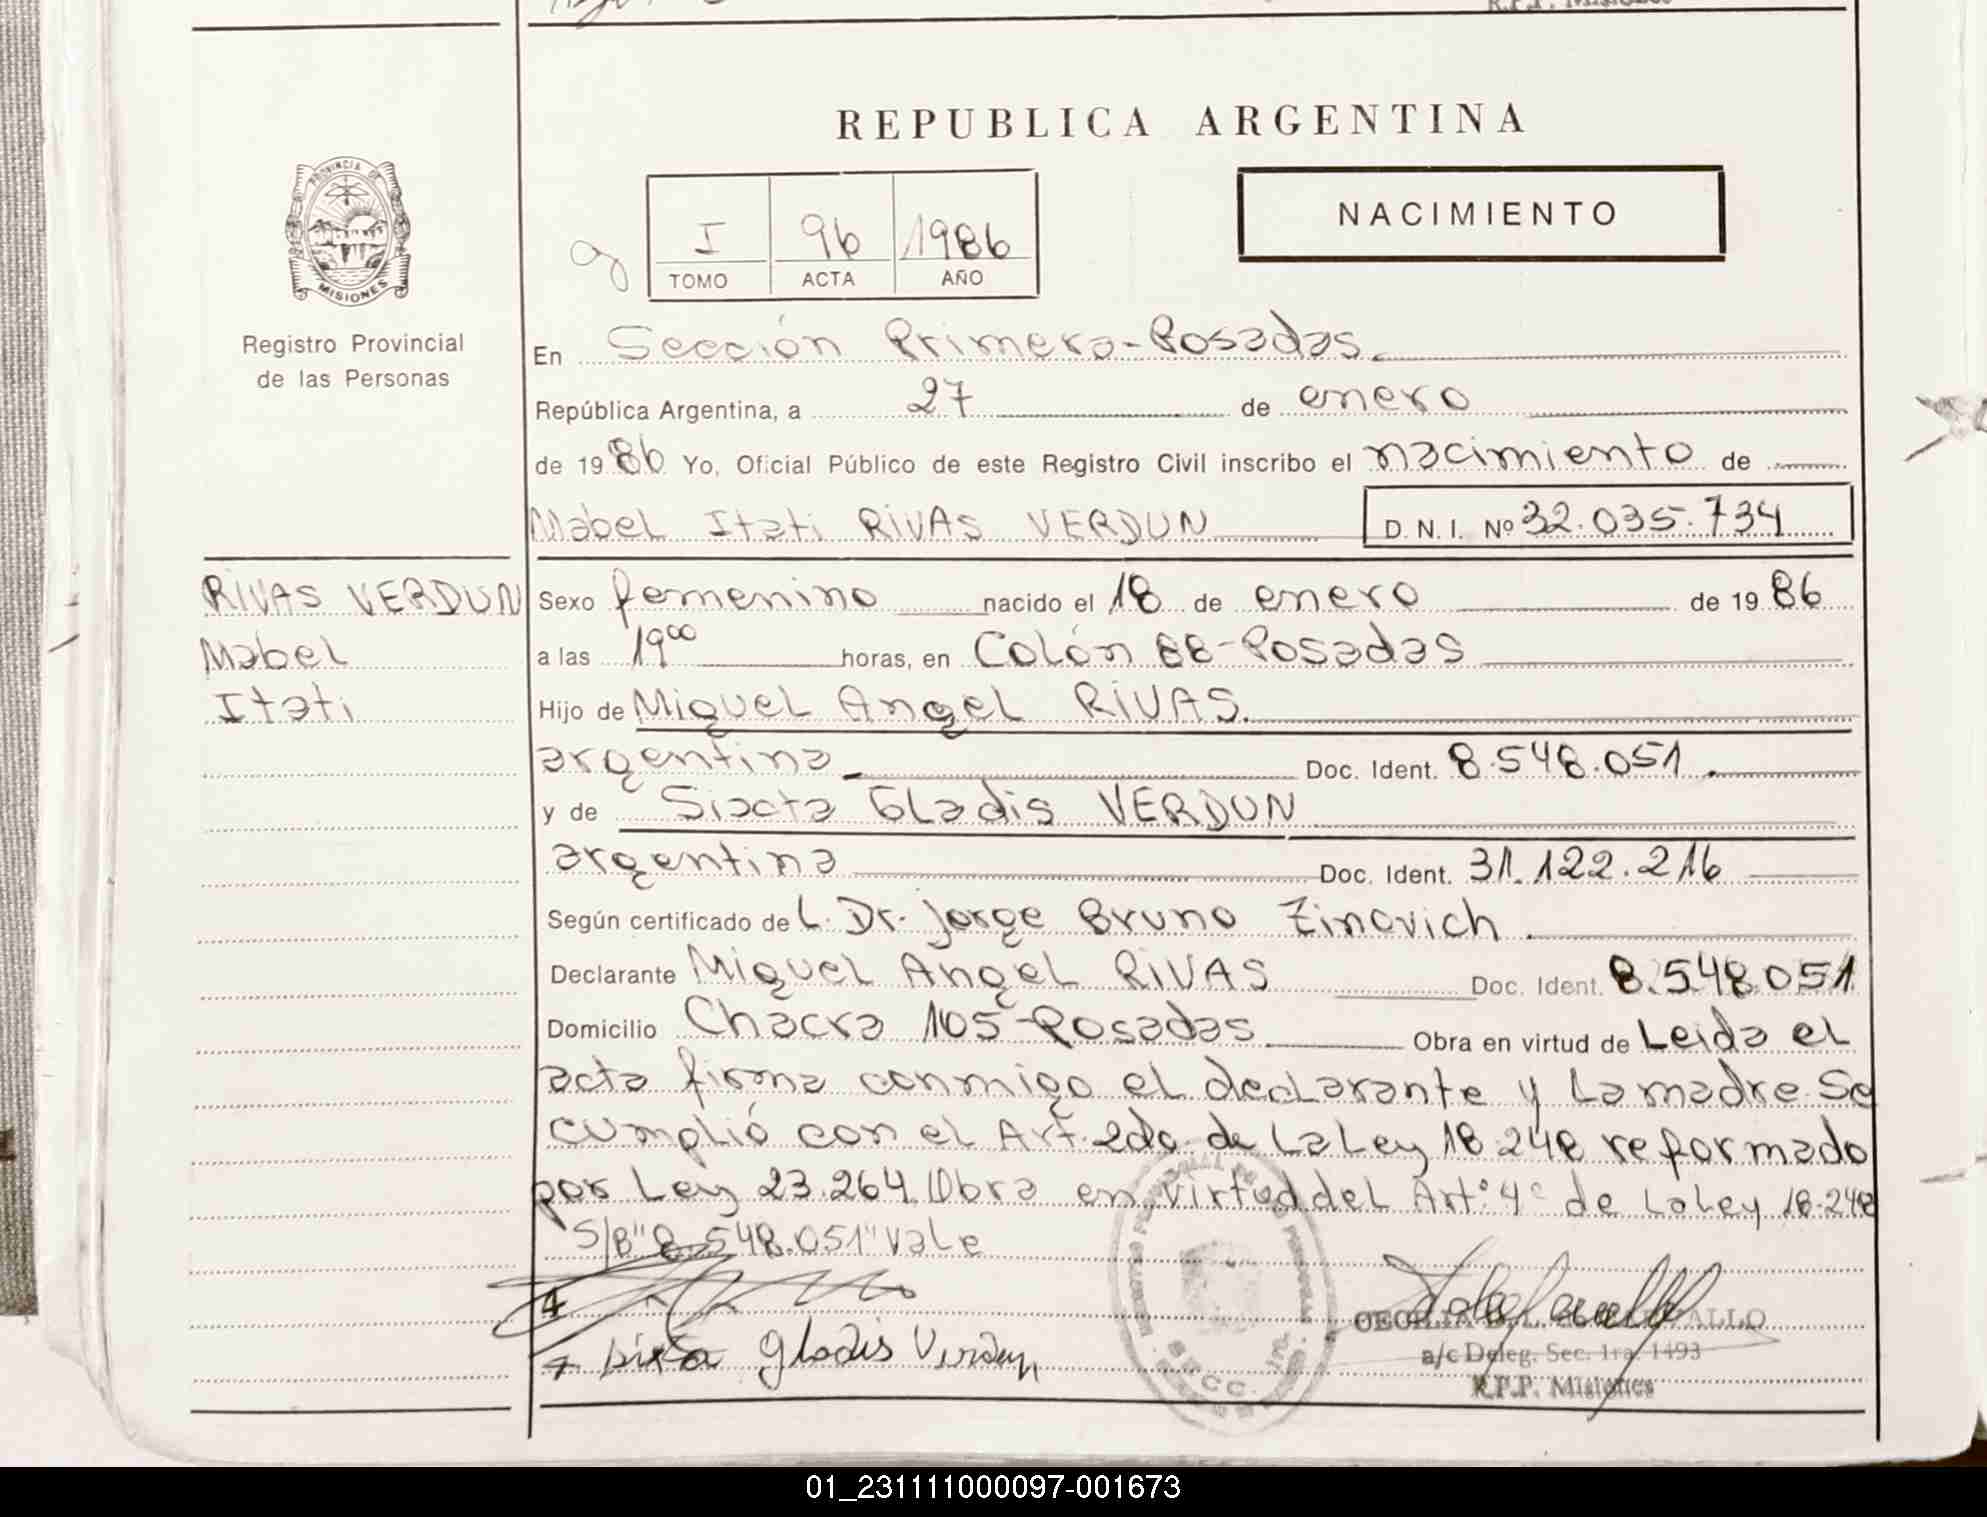 R.P.P. Misiones
REPUBLICA ARGENTINA
PROVINCIA DE
MISIONES
Registro Provincial
de las Personas
I 96 1986
TOMO ACTA AÑO
NACIMIENTO
En Sección Primera-Posadas.
República Argentina, a 27 de enero
de 1986 Yo, Oficial Público de este Registro Civil inscribo el nacimiento de
Mabel Itati RIVAS VERDUN D. N. I. Nº 32.035.734
RIVAS VERDUN
Mabel
Itati
Sexo femenino nacido el 18 de enero de 1986
a las 1900 horas, en Colón 88-Posadas
Hijo de Miguel Angel RIVAS.
argentina Doc. Ident. 8.548.051.
y de Sixta Gladis VERDUN
argentina Doc. Ident. 31.122.216
Según certificado de L. Dr. Jorge Bruno Zinovich.
Declarante Miguel Angel RIVAS Doc. Ident. 8.548.051
Domicilio Chacra 105-Posadas Obra en virtud de Leida el
acta firma conmigo el declarante y La madre. Se
cumplió con el Art. 2do. de La Ley 18.248 reformado
por Ley 23.264. Obra en virtud del Artº 4º de La Ley 18.248
S/B "8.548.051" Vale
Sixta Gladis Verdun
a/c Deleg. Sec. 1ra. 1493
R.P.P. Misiones
01_231111000097-001673